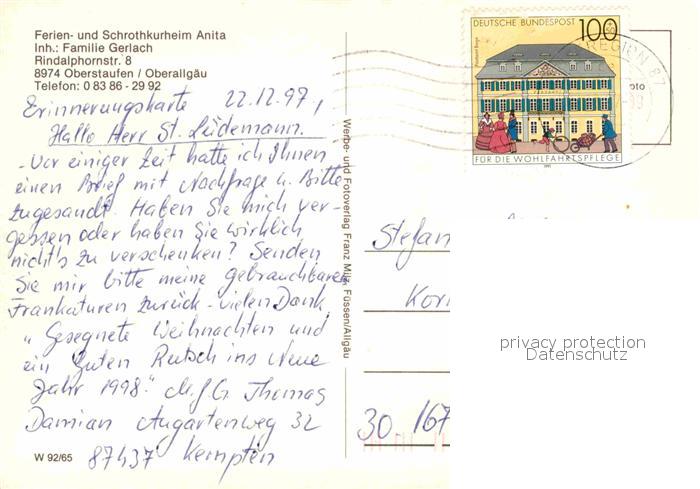 Ferien- und Schrothkurheim Anita
Inh.: Familie Gerlach
Rindalphornstr. 8
8974 Oberstaufen / Oberallgäu
Telefon: 0 83 86 - 29 92
Erinnerungskarte 22.12.97,
Hallo Herr St. Lüdemann.
- Vor einiger Zeit hatte ich Ihnen
einen Brief mit Nachfrage u. Bitte
zugesandt. Haben Sie mich ver-
gessen oder haben Sie wirklich
nicht's zu verschenken? Senden
Sie mir bitte meine gebrauchbaren
Frankaturen zurück - vielen Dank,
"Gesegnete Weihnachten und
ein guten Rutsch ins Neue
Jahr 1998." M.f.G. Thomas
Damian Augartenweg 32
87437 Kempten
W 92/65
Werbe- und Fotoverlag Franz Milz, Füssen/Allgäu
DEUTSCHE BUNDESPOST 100
+50
FÜR DIE WOHLFAHRTSPFLEGE
1991
REGION 87
oto
Stefan
Kor
30 167
privacy protection
Datenschutz